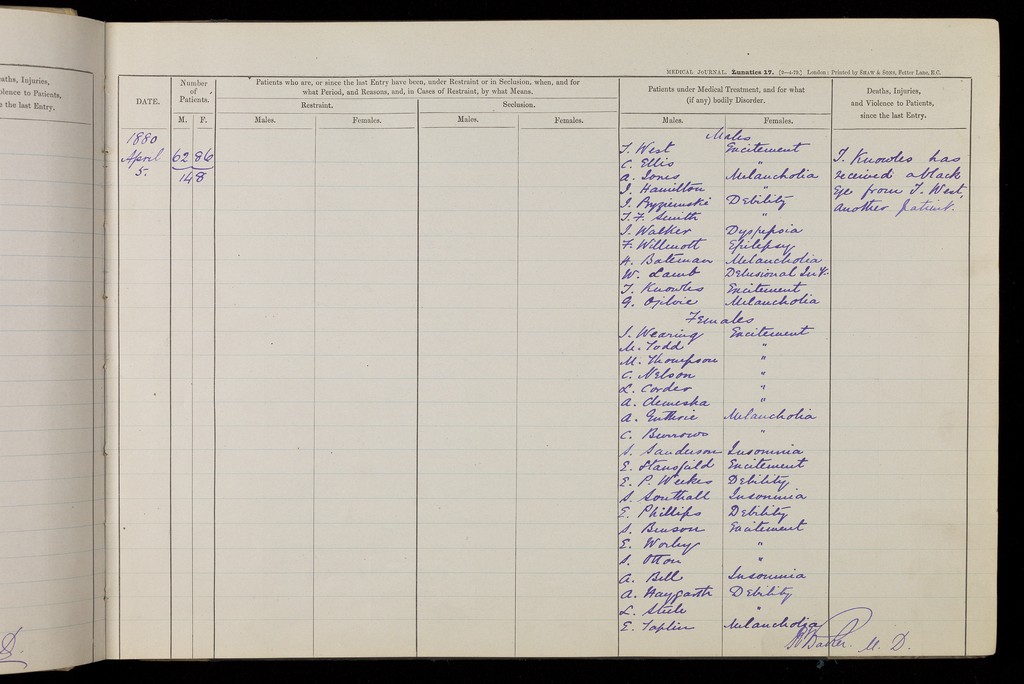 eaths, Injuries,
olence to Patients,
e the last Entry.
MEDICAL JOURNAL. Lunatics 17. [2—4-78.] London: Printed by SHAW & SONS, Fetter Lane, E.C.
DATE.
Number
of
Patients.
M. F.
Patients who are, or since the last Entry have been, under Restraint or in Seclusion, when, and for
what Period, and Reasons, and, in Cases of Restraint, by what Means.
Restraint.
Seclusion.
Males. Females.
Males. Females.
Patients under Medical Treatment, and for what
(if any) bodily Disorder.
Males. Females.
Deaths, Injuries,
and Violence to Patients,
since the last Entry.
1880
April
5.
62 86
148
Males
T. West Excitement
C. Ellis "
A. Jones Melancholia
J. Hamilton "
Debility
T. F. Smith "
J. Walker Dyspepsia
F. Willmott Epilepsy
H. Bateman Melancholia
W. Lamb Delusional
T. Knowles Excitement
G. Ogilvie Melancholia
Females
J. Wearing Excitement
M. Todd "
M. Thompson "
C. Nelson "
L. Corder "
A. "
A. Guthrie Melancholia
C. Burrows "
S. Sanderson Insomnia
E. Stansfield Excitement
E. P. Weekes Debility
S. Southall Insomnia
E. Phillips Debility
S. Benson Excitement
E. Worley "
S. Otton "
A. Bell Insomnia
A. Haygarth Debility
L. Steele "
E. Taplin Melancholia
T. Knowles has
received a black
eye from T. West,
another patient.
Baker. M. D.
D.